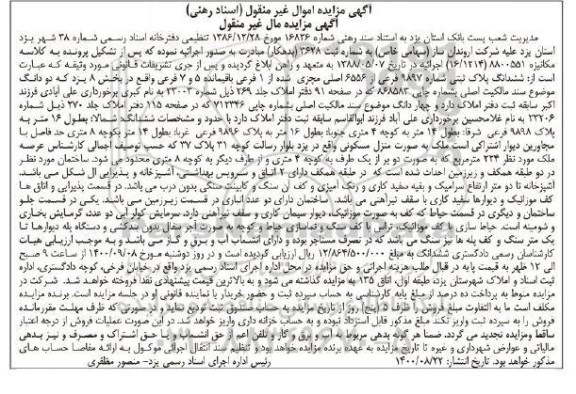 آگهی مزایده اموال غیر منقول (اسناد رهنی)
آگهی مزایده مال غیر منقول
مدیریت شعب پست بانک استان یزد به استناد سند رهنی شماره ۱۶۸۳۶ مورخ ۱۳۸۶/۱۲/۲۸ تنظیمی دفترخانه اسناد رسمی شماره ۳۸ شهر یزد
استان یزد علیه شرکت اروندان ساز (سهامی خاص) به شماره ثبت ۳۶۷۸ (بدهکار) مبادرت به صدور اجرائیه نموده که پس از تشکیل پرونده به کلاسه
مکانیزه ۸۸۰۰۵۵۱ (۱۶/۱۲۱۴) اجرائیه در تاریخ ۱۳۸۸/۰۵/۰۷ به متعهد و راهن ابلاغ گردیده و پس از جری تشریفات قانونی مورد وثیقه که عبارت
است از: ششدانگ پلاک ثبتی شماره ۹۸۹۷ فرعی از ۶۵۵۶ اصلی مجزی شده از ۱ فرعی باقیمانده ۵ و ۷ فرعی واقع در بخش ۸ یزد که دو دانگ
موضوع سند مالکیت اصلی بشماره چاپی ۸۶۸۵۸۳ در صفحه ۹۱ دفتر املاک جلد ۲۶۹ ذیل شماره ۲۳۰۰۳ به نام کبری برخورداری علی آبادی فرزند
اکبر سابقه ثبت دفتر املاک دارد و چهار دانگ موضوع سند مالکیت اصلی بشماره چاپی ۱۲۳۴۶ که در صفحه ۱۱۵ دفتر املاک جلد ۲۷۰ ذیل شماره
۲۳۲۰۶ به نام غلامحسین برخورداری علی آباد فرزند ابوالقاسم سابقه ثبت دفتر املاک دارد با حدود و مشخصات ششدانگ: شمالا: بطول ۱۶ متر به
پلاک ۹۸۹۸ فرعی شرقا: بطول ۱۴ متر به کوچه ۴ متری جنوبا: بطول ۱۶ متر به پلاک ۹۸۹۶ فرعی غربا: بطول ۱۴ متر به کوچه ۸ متری حد فاصل با
مجاورین دیوار اشتراکی است ملک به صورت منزل مسکونی واقع در یزد بلوار رسالت کوچه ۳۱ پلاک ۳۷ که حسب توصیف اجمالی کارشناس عرصه
ملک مورد نظر ۲۲۴ مترمربع که به صورت دو بر از یک طرف به کوچه ۴ متری و از طرف دیگر به کوچه ۸ متری محدود می شود. ساختمان مورد نظر
در دو طبقه همکف و زیرزمین احداث شده است که در طبقه همکف دارای ۲ اتاق و سرویس بهداشتی، آشپزخانه و پذیرایی ال شکل می باشد.
آشپزخانه تا دو متر ارتفاع سرامیک و بقیه سفید کاری و رنگ آمیزی و کف آن سنگ و کابینت سنگی بدون درب می باشد. در قسمت پذیرایی و اتاق ها
کف موزائیک و دیوارها سفید کاری با سقف تیرآهنی می باشد. ساختمان دارای دو عدد انباری در قسمت زیرزمین می باشد. یکی در قسمت جلو
ساختمان و دیگری در قسمت حیاط که کف به صورت موزائیک، دیوار سیمان کاری و سقف آهنی دارد. سرمایش کولر آبی دو عدد، گرمایش بخاری
و شومینه است. حیاط سازی به صورت موزائیک، تراس با کف سنگ و نماسازی حیاط و کوچه به صورت آجر سفال بدون بندکشی و دستگاه پله دیوارها تا
یک متر سنگ و کف پله ها نیز سنگ می باشد که در تصرف مستاجر بوده و دارای انشعاب آب و برق و گاز می باشد و به موجب ارزیابی هیات
کارشناسان رسمی دادگستری ششدانگ به مبلغ ۱۲/۸۶۴/۵۰۰/۰۰۰ ریال ارزیابی گردیده است و در روز دوشنبه مورخ ۱۴۰۰/۰۹/۰۸ از ساعت ۹ صبح
الی ۱۲ ظهر به قیمت پایه در قبال طلب هزینه اجرائی و حق مزایده در محل اداره اجرای اسناد رسمی یزد واقع در خیابان فرخی، کوچه دادگستری، اداره
ثبت اسناد و املاک شهرستان یزد، طبقه اول، اتاق ۱۳۵ به مزایده گذاشته می شود و به بالاترین قیمت پیشنهادی نقدا فروخته خواهد شد. شرکت در
مزایده منوط به پرداخت ده درصد از مبلغ پایه کارشناسی به حساب سپرده ثبت و حضور خریدار یا نماینده قانونی او در جلسه مزایده است. برنده مزایده
مکلف است ما به التفاوت مبلغ فروش را ظرف (پنج) روز از تاریخ مزایده به حساب صندوق ثبت تودیع نماید و در صورتی که ظرف مهلت مقرر مانده
فروش را به سپرده ثبت واریز نکند مبلغ مذکور قابل استرداد نبوده و به حساب خزانه داری واریز خواهد شد. در این صورت عملیات فروش از درجه اعتبار
ساقط ومزایده تجدید می گردد. ضمنا هر گونه بدهی مربوط به آب، برق و گاز و تلفن اعم از حق انشعاب و یا حق اشتراک و مصرف و نیز بدهی
مالیاتی و عوارض شهرداری و غیره تا تاریخ مزایده به عهده برنده مزایده خواهد بود و تنظیم سند انتقال اجرائی موکول به ارائه مفاصا حساب های
مذکور خواهد بود. تاریخ انتشار: ۱۴۰۰/۰۸/۲۲
رئیس اداره اجرای اسناد رسمی یزد- منصور مظفری